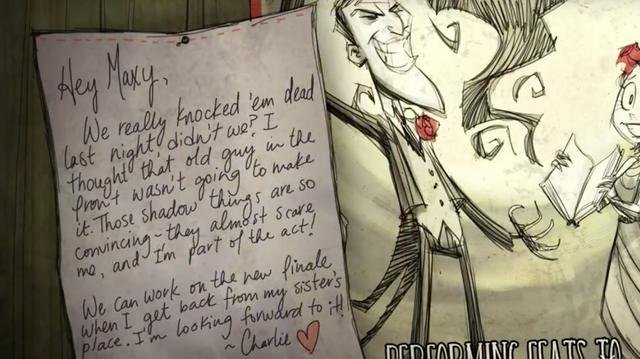 Hey Maxy,
We really knocked 'em dead
last night, didn't we? I
thought that old guy in the
front wasn't going to make
it. Those shadow things are so
convincing - they almost scare
me, and I'm part of the act!
We can work on the new finale
when I get back from my sister's
place. I'm looking forward to it!
~ Charlie
PERFORMING FEATS TA